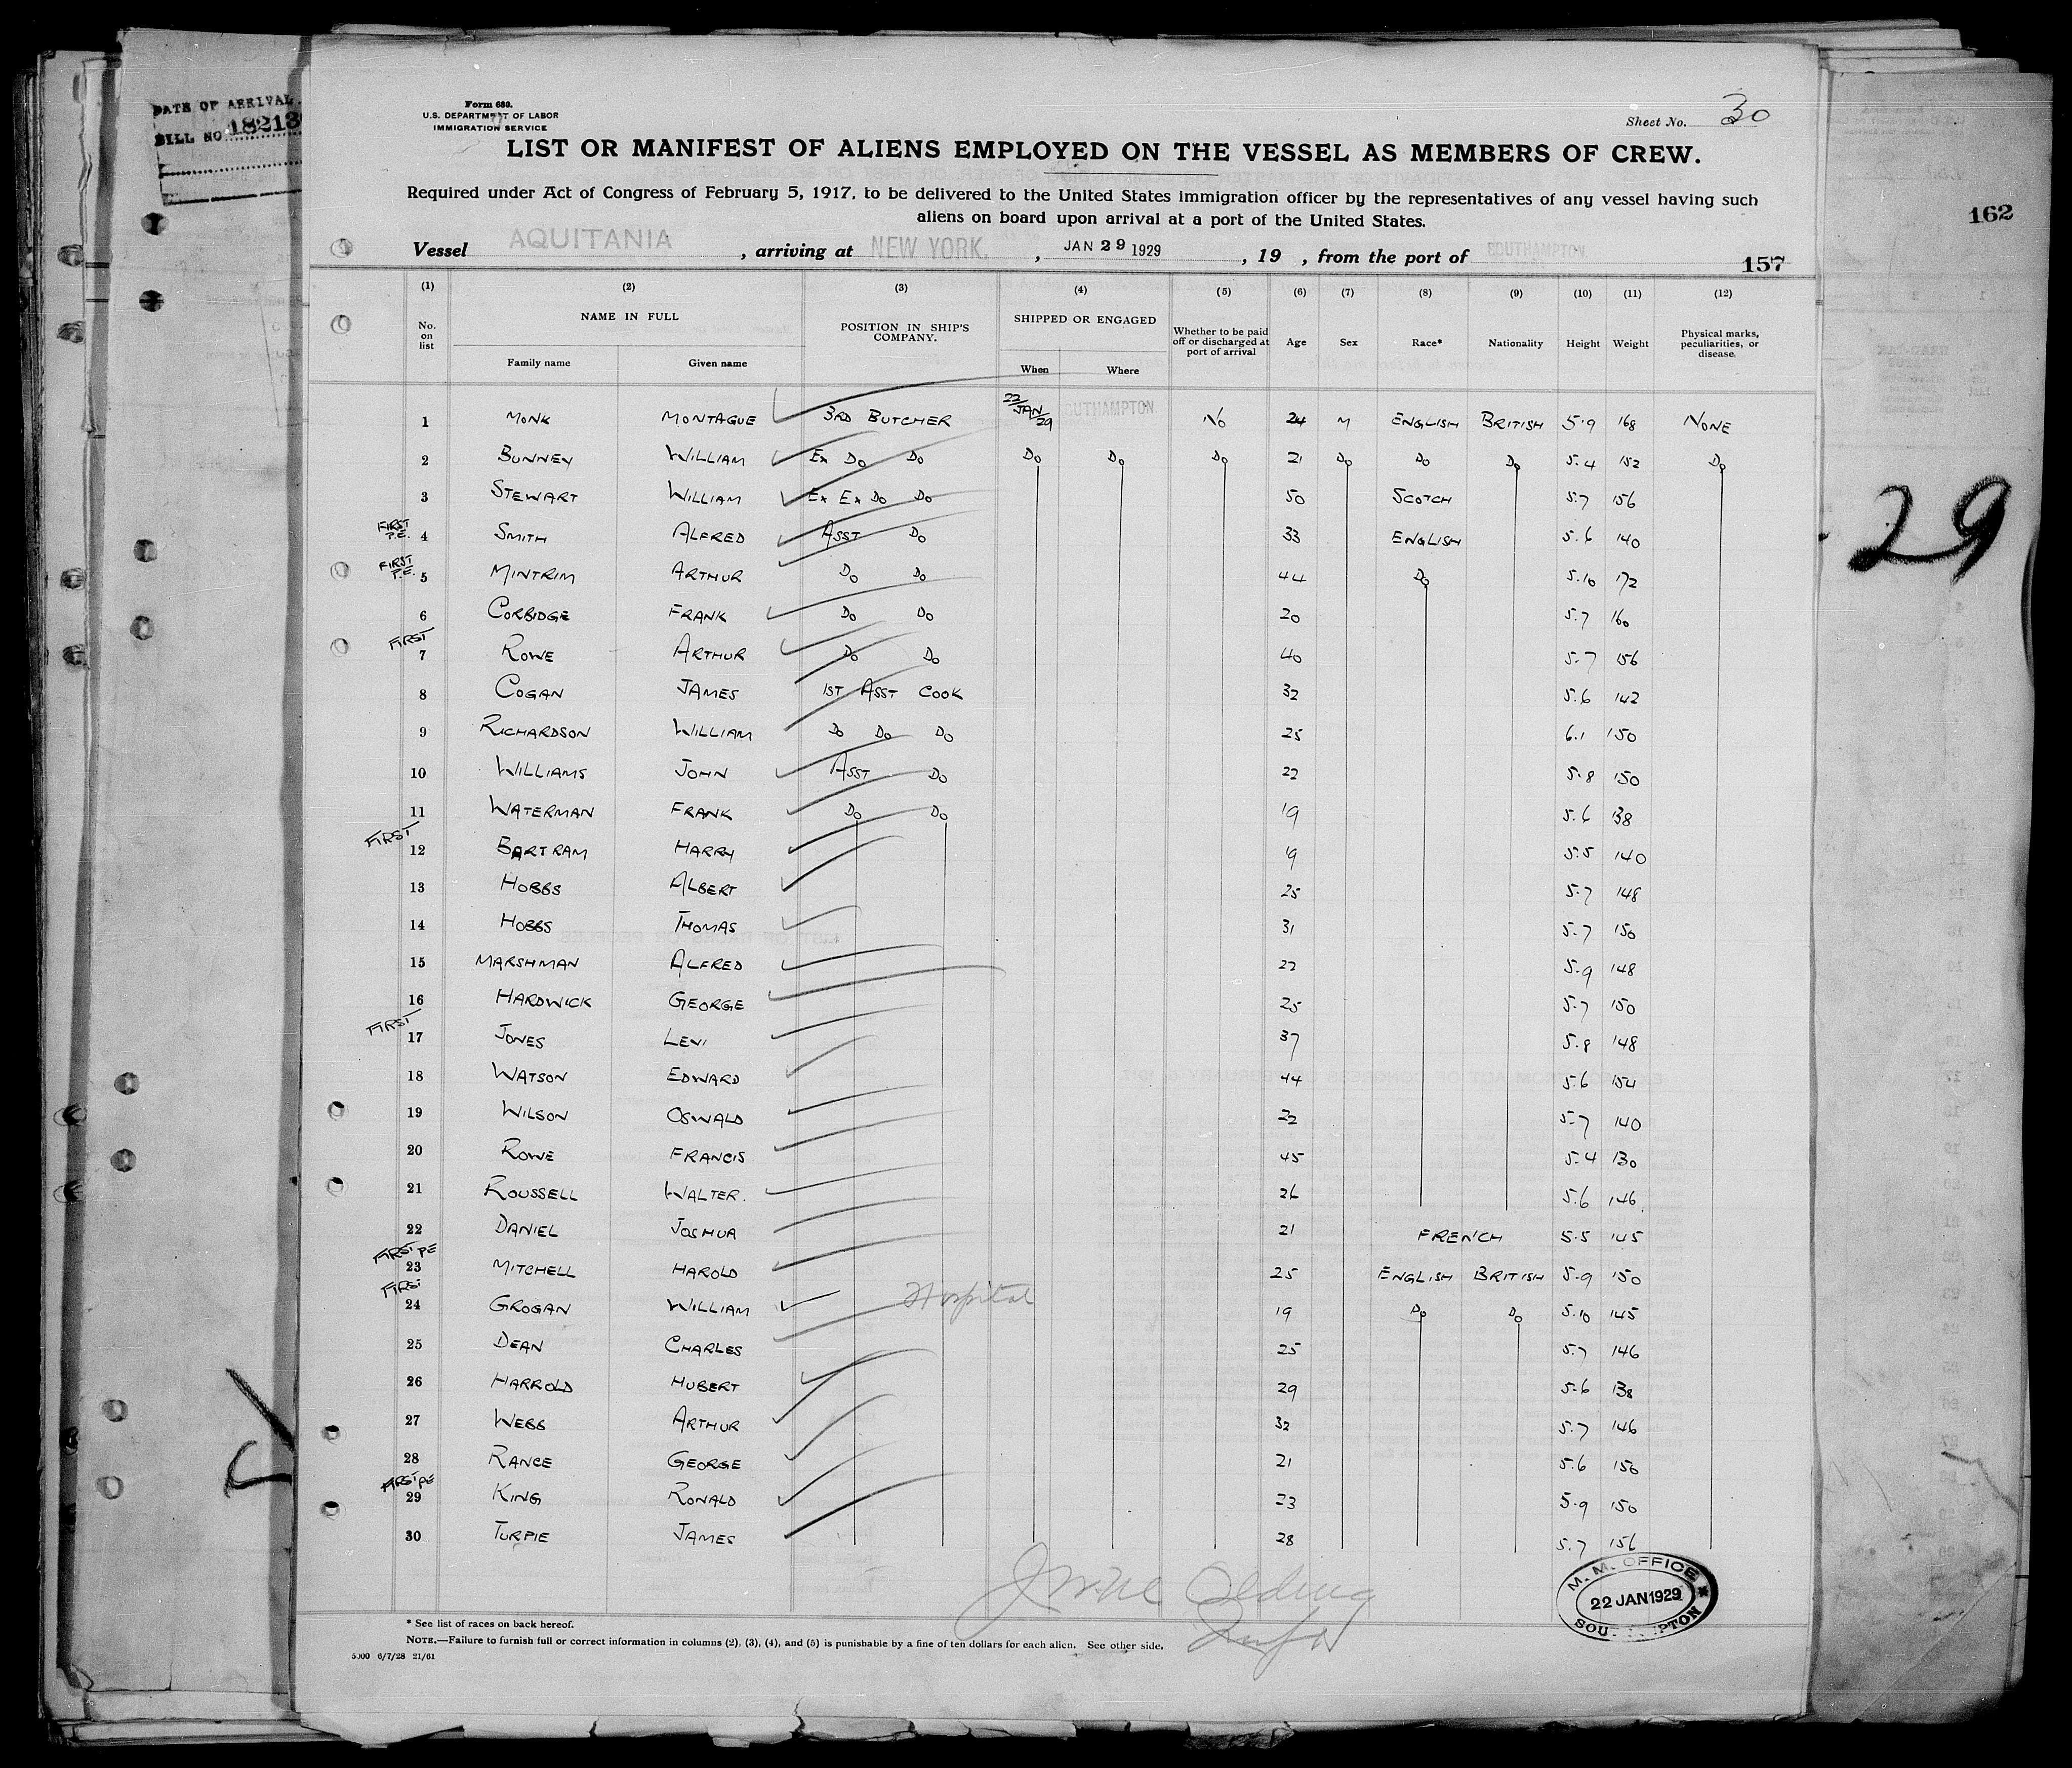 DATE OF ARRIVAL
BILL NO 18213
Form 680.
U.S. DEPARTMENT OF LABOR
IMMIGRATION SERVICE
Sheet No. 30
LIST OR MANIFEST OF ALIENS EMPLOYED ON THE VESSEL AS MEMBERS OF CREW.
Required under Act of Congress of February 5, 1917, to be delivered to the United States immigration officer by the representatives of any vessel having such
aliens on board upon arrival at a port of the United States.
162
Vessel AQUITANIA, arriving at NEW YORK., JAN 29 1929, 19 , from the port of SOUTHAMPTON
157
(1) (2) (3) (4) (5) (6) (7) (8) (9) (10) (11) (12)
No. on list NAME IN FULL POSITION IN SHIP'S COMPANY. SHIPPED OR ENGAGED Whether to be paid off or discharged at port of arrival Age Sex Race* Nationality Height Weight Physical marks, peculiarities, or disease.
Family name Given name When Where
1 MONK MONTAGUE 3RD BUTCHER 22/JAN/29 SOUTHAMPTON No 24 M ENGLISH BRITISH 5.9 168 NONE
2 BUNNEY WILLIAM Ex Do Do Do Do Do 21 Do Do Do 5.4 152 Do
3 STEWART WILLIAM Ex Ex Do Do 50 SCOTCH 5.7 156
FIRST P.E. 4 SMITH ALFRED ASST Do 33 ENGLISH 5.6 140
FIRST P.E. 5 MINTRIM ARTHUR Do Do 44 Do 5.10 172
6 CORBIDGE FRANK Do Do 20 5.7 160
FIRST 7 ROWE ARTHUR Do Do 40 5.7 156
8 COGAN JAMES 1ST ASST COOK 32 5.6 142
9 RICHARDSON WILLIAM Do Do Do 25 6.1 150
10 WILLIAMS JOHN ASST Do 22 5.8 150
11 WATERMAN FRANK Do Do 19 5.6 138
FIRST 12 BARTRAM HARRY 19 5.5 140
13 HOBBS ALBERT 25 5.7 148
14 HOBBS THOMAS 31 5.7 150
15 MARSHMAN ALFRED 22 5.9 148
16 HARDWICK GEORGE 25 5.7 150
FIRST 17 JONES LEVI 37 5.8 148
18 WATSON EDWARD 44 5.6 154
19 WILSON OSWALD 22 5.7 140
20 ROWE FRANCIS 45 5.4 130
21 ROUSSELL WALTER. 26 5.6 146
22 DANIEL JOSHUA 21 FRENCH 5.5 145
FIRST PE 23 MITCHELL HAROLD 25 ENGLISH BRITISH 5.9 150
FIRST 24 GROGAN WILLIAM Hospital 19 Do Do 5.10 145
25 DEAN CHARLES 25 5.7 146
26 HARROLD HUBERT 29 5.6 138
27 WEBB ARTHUR 32 5.7 146
28 RANCE GEORGE 21 5.6 150
FIRST PE 29 KING RONALD 23 5.9 150
30 TURPIE JAMES 28 5.7 156
29
M. M. OFFICE
22 JAN 1929
SOUTHAMPTON
* See list of races on back hereof.
NOTE.—Failure to furnish full or correct information in columns (2), (3), (4), and (5) is punishable by a fine of ten dollars for each alien. See other side.
5000 6/7/28 21/61